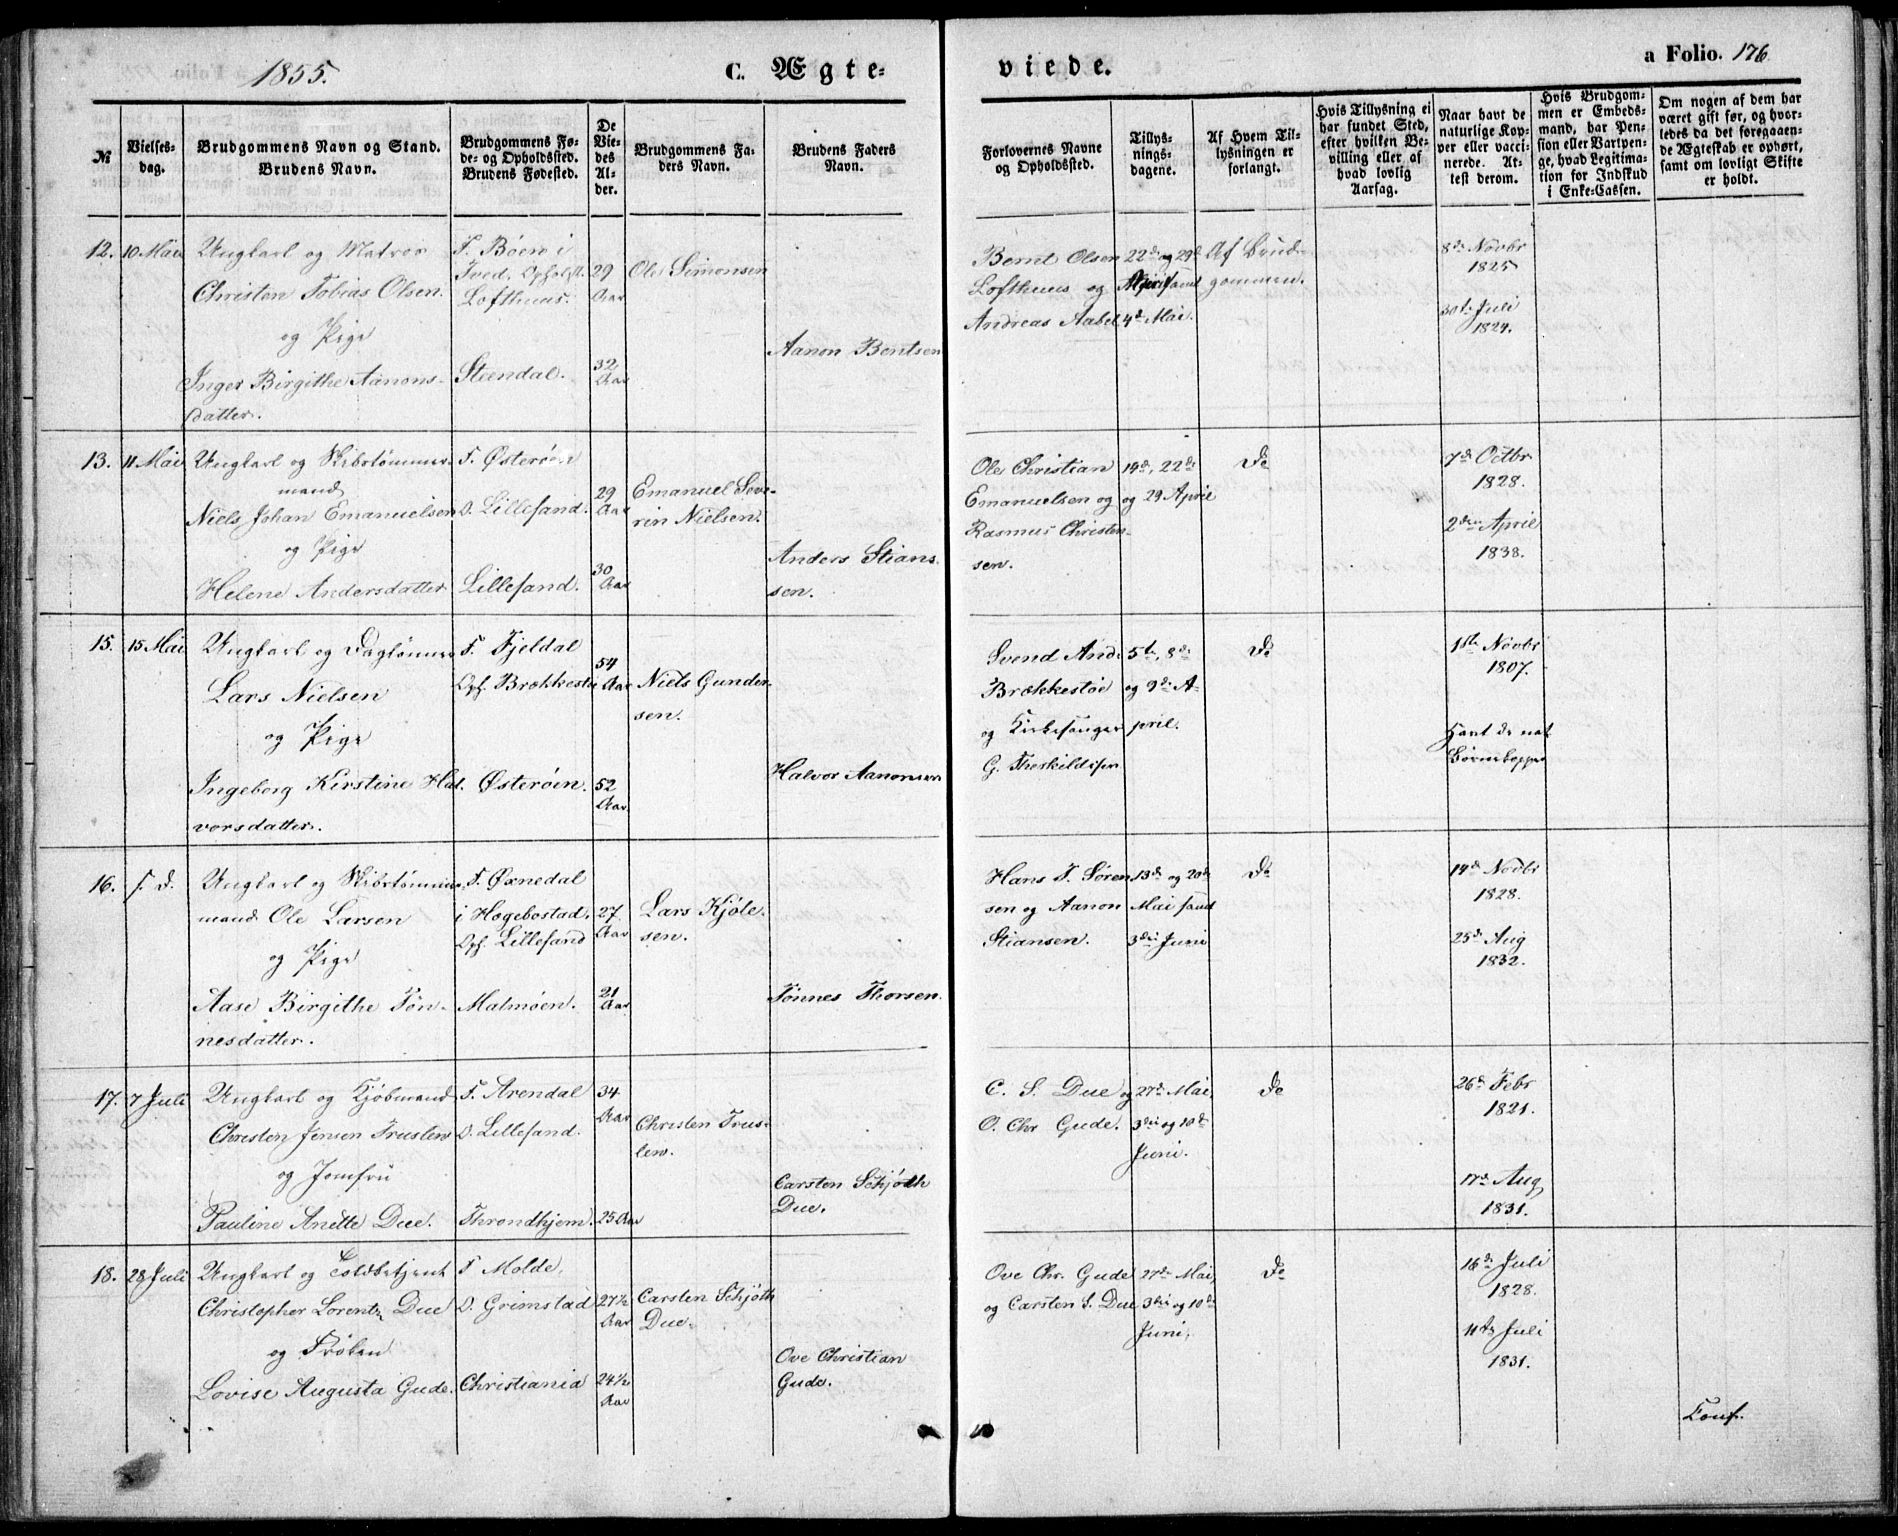 1855.
C. Ægte-
viede.
a Folio. 176
№
Vielses-
dag.
Brudgommens Navn og Stand.
Brudens Navn.
Brudgommens Fø-
de- og Opholdssted.
Brudens Fødested.
De
Vie-
des
Al-
der.
Brudgommens Fa-
ders Navn.
Brudens Faders
Navn.
Forlovernes Navne
og Opholdssted.
Tillys-
nings-
dagene.
Af Hvem Til-
lysningen er
forlangt.
Hvis Tillysning ei
har fundet Sted,
efter hvilken Be-
villing eller af
hvad lovlig
Aarsag.
Naar havt de
naturlige Kop-
per eller vacci-
nerede. At-
test derom.
Hvis Brudgom-
men er Embeds-
mand, har Pen-
sion eller Vartpen-
ge, hvad Legitima-
tion for Indskud
i Enke-Cassen.
Om nogen af dem har
været gift før, og hvor-
ledes da det foregaaen-
de Ægteskab er ophørt,
samt om lovligt Skifte
er holdt.
12. 10 Mai
Ungkarl og Matros
Christen Tobias Olsen.
og Pige
Inger Birgithe Aanons-
datter.
F. Böen i
Tved. Opholdst.
Lofthuus.
Stændal.
29
Aar
32
Aar
Ole Simonsen
Aanon Bentsen
Bernt Olsen
Lofthuus og
Andreas Aabel
22de og 29de
April samt
4de Mai.
Af Brud-
gommen.
8de Novbr
1825
30te Juli
1824.
13. 11 Mai
Ungkarl og Skibstømmer-
mand
Niels Johan Emanuelsen
og Pige
Helene Andersdatter
F. Østerøen
O. Lillesand.
Lillesand.
29
Aar
30
Aar
Emanuel Seve-
rin Nielsen.
Anders Stians-
sen.
Ole Christian
Emanuelsen og
Rasmus Christen-
sen.
19de, 22de
og 29 April
Do
7de Octbr
1828.
2den April
1838.
15. 15 Mai
Ungkarl og Daglønner
Lars Nielsen
og Pige
Ingeborg Kirstine Hal-
vorsdatter.
F. Fjeldal
Oph. Brækkestø
Østerøen.
54
Aar
52
Aar
Niels Gunder-
sen.
Halvor Aanonsen
Svend And.
Brækkestøe
og Kirkesanger
G. Theskildssen
5te, 8de
og 9de A-
pril.
Do
1ste Novbr
1807.
Havt de nat
Børnekopper
16. s. D.
Ungkarl og Skibstømmer-
mand Ole Larsen
og Pige
Aase Birgithe Tøn-
nesdatter.
F. Øxnedal
i Hægebostad,
Oph. Lillesand
Malmöen.
27
Aar
21
Aar
Lars Kjøle-
sen.
Tönnes Thorsen.
Hans T. Søren-
sen og Aanon
Stiansen.
13de og 20de
Mai samt
3die Juni
Do
14de Novbr
1828.
25de Aug
1832.
17. 7 Juli
Ungkarl og Kjøbmand
Christen Jensen Trusten
og Jomfru
Pauline Anette Due.
F. Arendal
O. Lillesand.
Throndhjem.
34
Aar
25 Aar
Christen Trus-
len.
Carsten Schjøth
Due.
C. S. Due og
O. Chr Gude.
27de Mai,
3die og 10de
Juni.
Do
26de Febr
1821.
17de Aug
1831.
18. 28 Juli
Ungkarl og Toldbetjent
Christopher Lorentz Due
og Frøken
Lovise Augusta Gude.
F. Molde,
O. Grimstad
Christiania
27½
Aar
24½
Aar
Carsten Schjøth
Due.
Ove Christian
Gude.
Ove Chr. Gude
og Carsten S. Due
27de Mai,
3die og 10de
Juni,
Do
16de Juli
1828.
11te Juli
1831.
Conf.